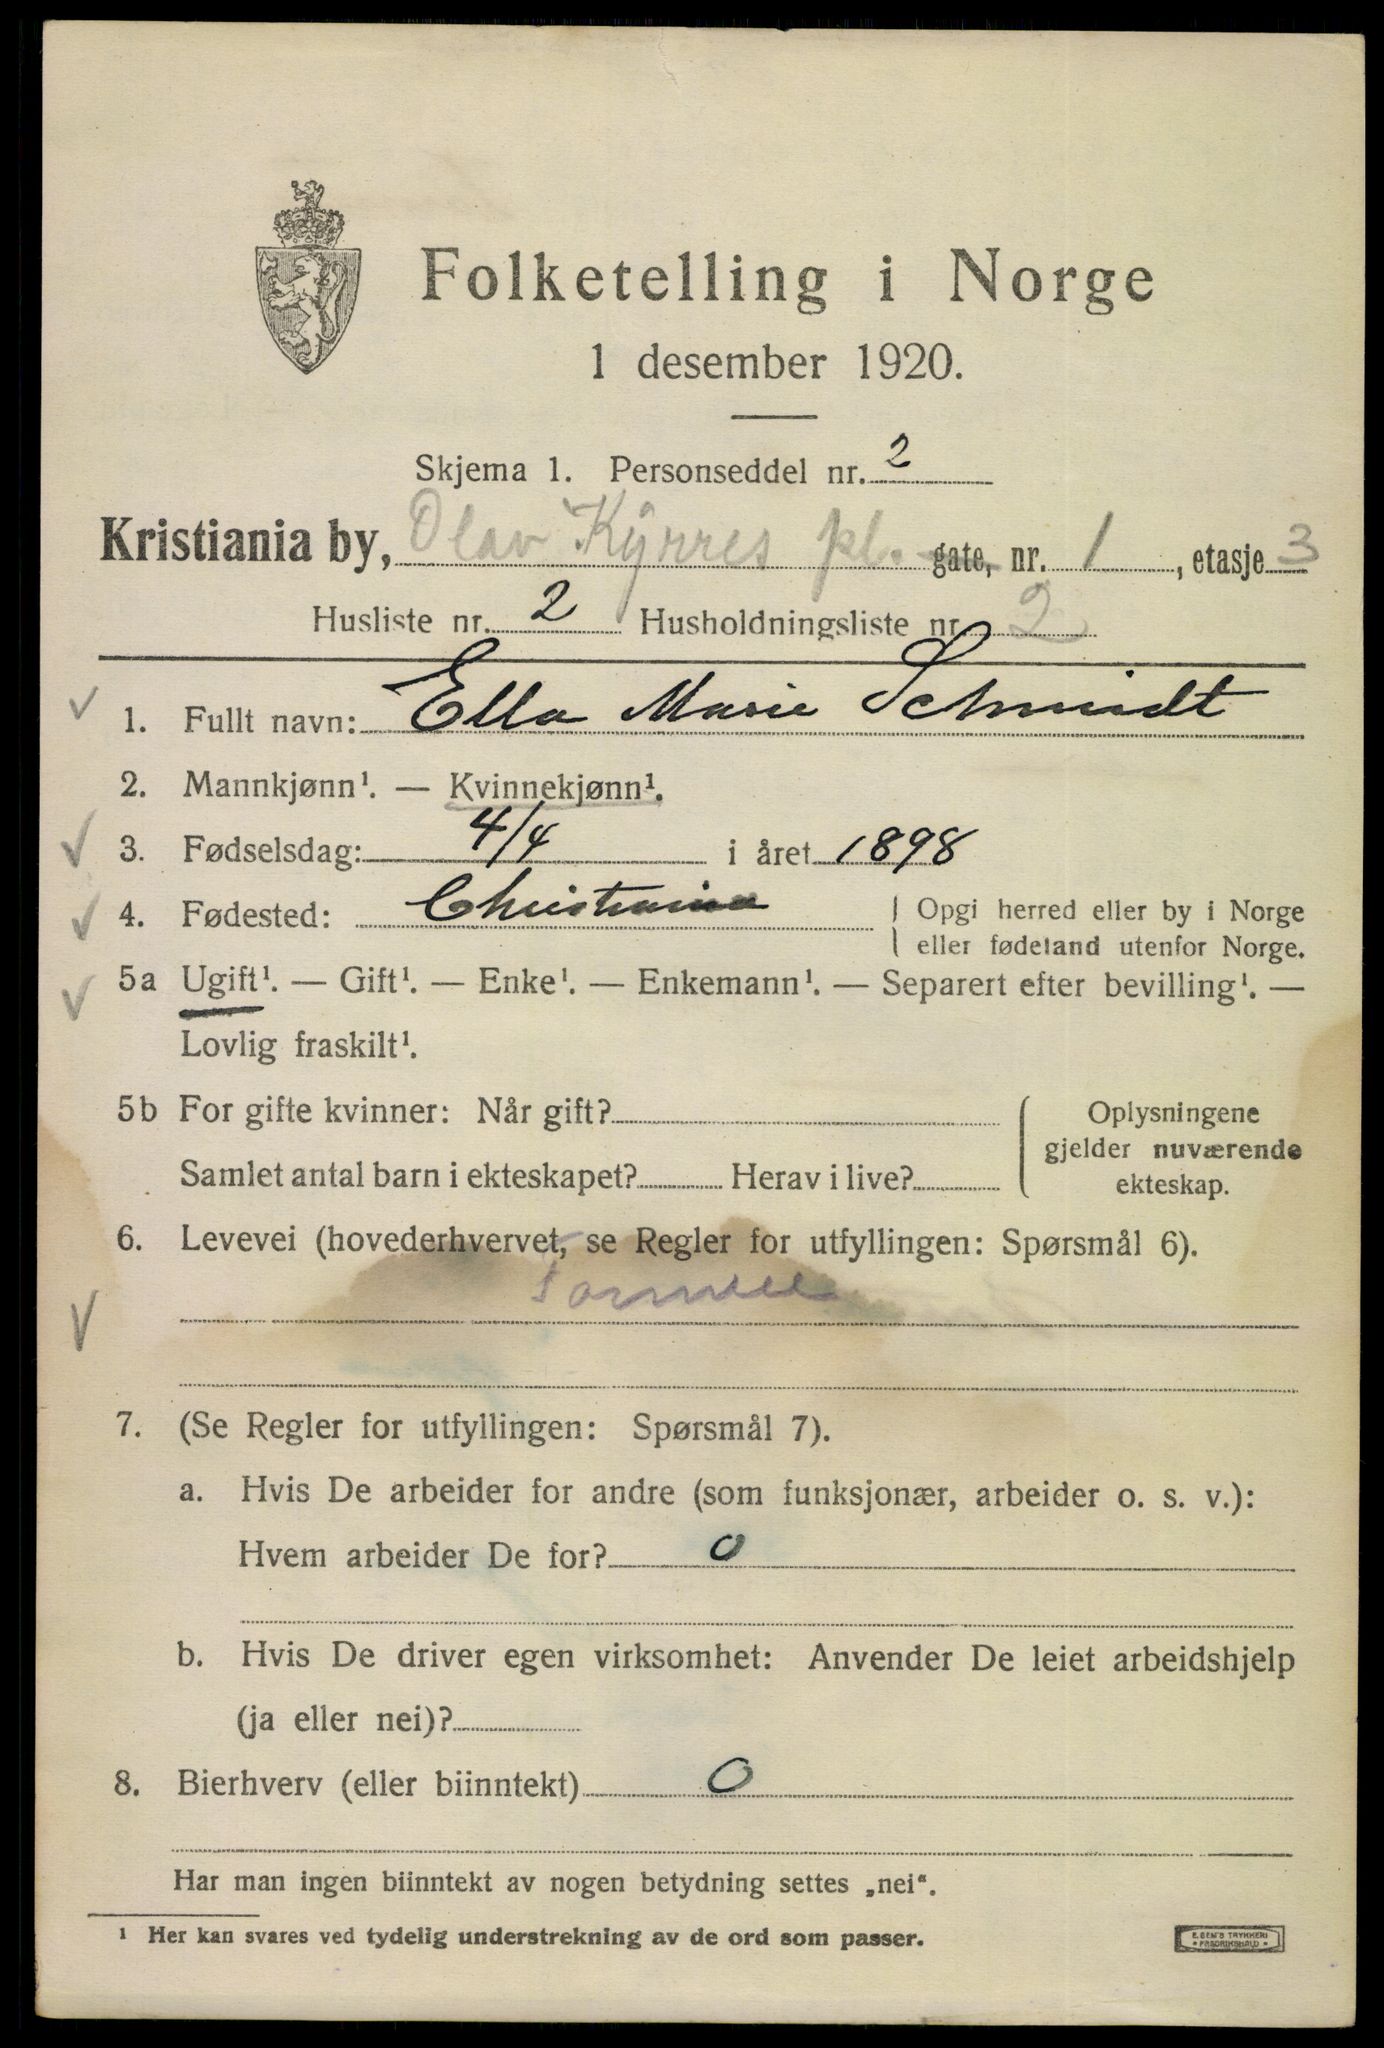 Folketelling i Norge
1 desember 1920.
Skjema 1. Personseddel nr. 2
Kristiania by, Olav Kyrres pl. gate, nr. 1, etasje 3
Husliste nr. 2 Husholdningsliste nr. 2
1. Fullt navn: Ella Marie Schmidt
2. Mannkjønn¹. — Kvinnekjønn¹.
3. Fødselsdag: 4/4 i året 1898
4. Fødested: Christiania Opgi herred eller by i Norge
eller fødeland utenfor Norge.
5a Ugift¹. — Gift¹. — Enke¹. — Enkemann¹. — Separert efter bevilling¹. —
Lovlig fraskilt¹.
5b For gifte kvinner: Når gift? Oplysningene
gjelder nuværende
Samlet antal barn i ekteskapet? Herav i live? ekteskap.
6. Levevei (hovederhvervet, se Regler for utfyllingen: Spørsmål 6).
7. (Se Regler for utfyllingen: Spørsmål 7).
a. Hvis De arbeider for andre (som funksjonær, arbeider o. s. v.):
Hvem arbeider De for? 0
b. Hvis De driver egen virksomhet: Anvender De leiet arbeidshjelp
(ja eller nei)?
8. Bierhverv (eller biinntekt) 0
Har man ingen biinntekt av nogen betydning settes „nei“.
¹ Her kan svares ved tydelig understrekning av de ord som passer.
E. SEM'S TRYKKERI
• FREDRIKSHALD •